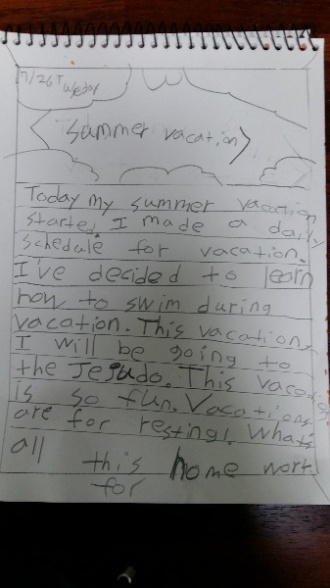 7/26 Tuesday
<Summer vacation>
Today my summer vacation
started. I made a daily
schedule for vacation.
I've decided to learn
how to swim during
vacation. This vacation
I will be going to
the Jejudo. This vacation
is so fun. Vacations
are for resting! What's
all this home work
for